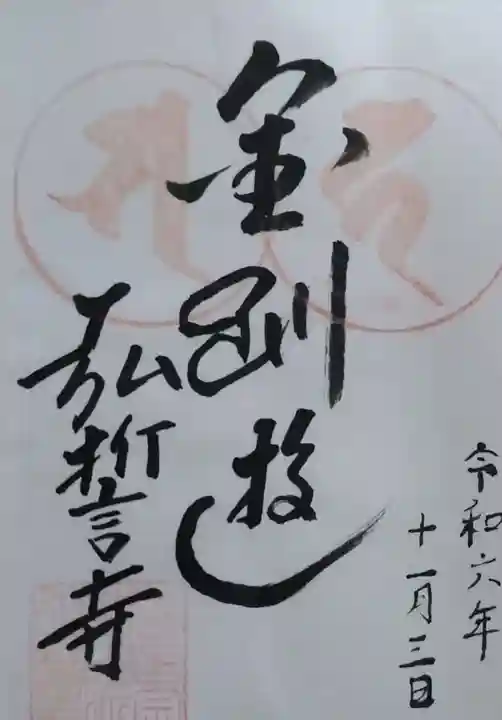 令和六年
十一月三日
金剛遊
弘誓寺